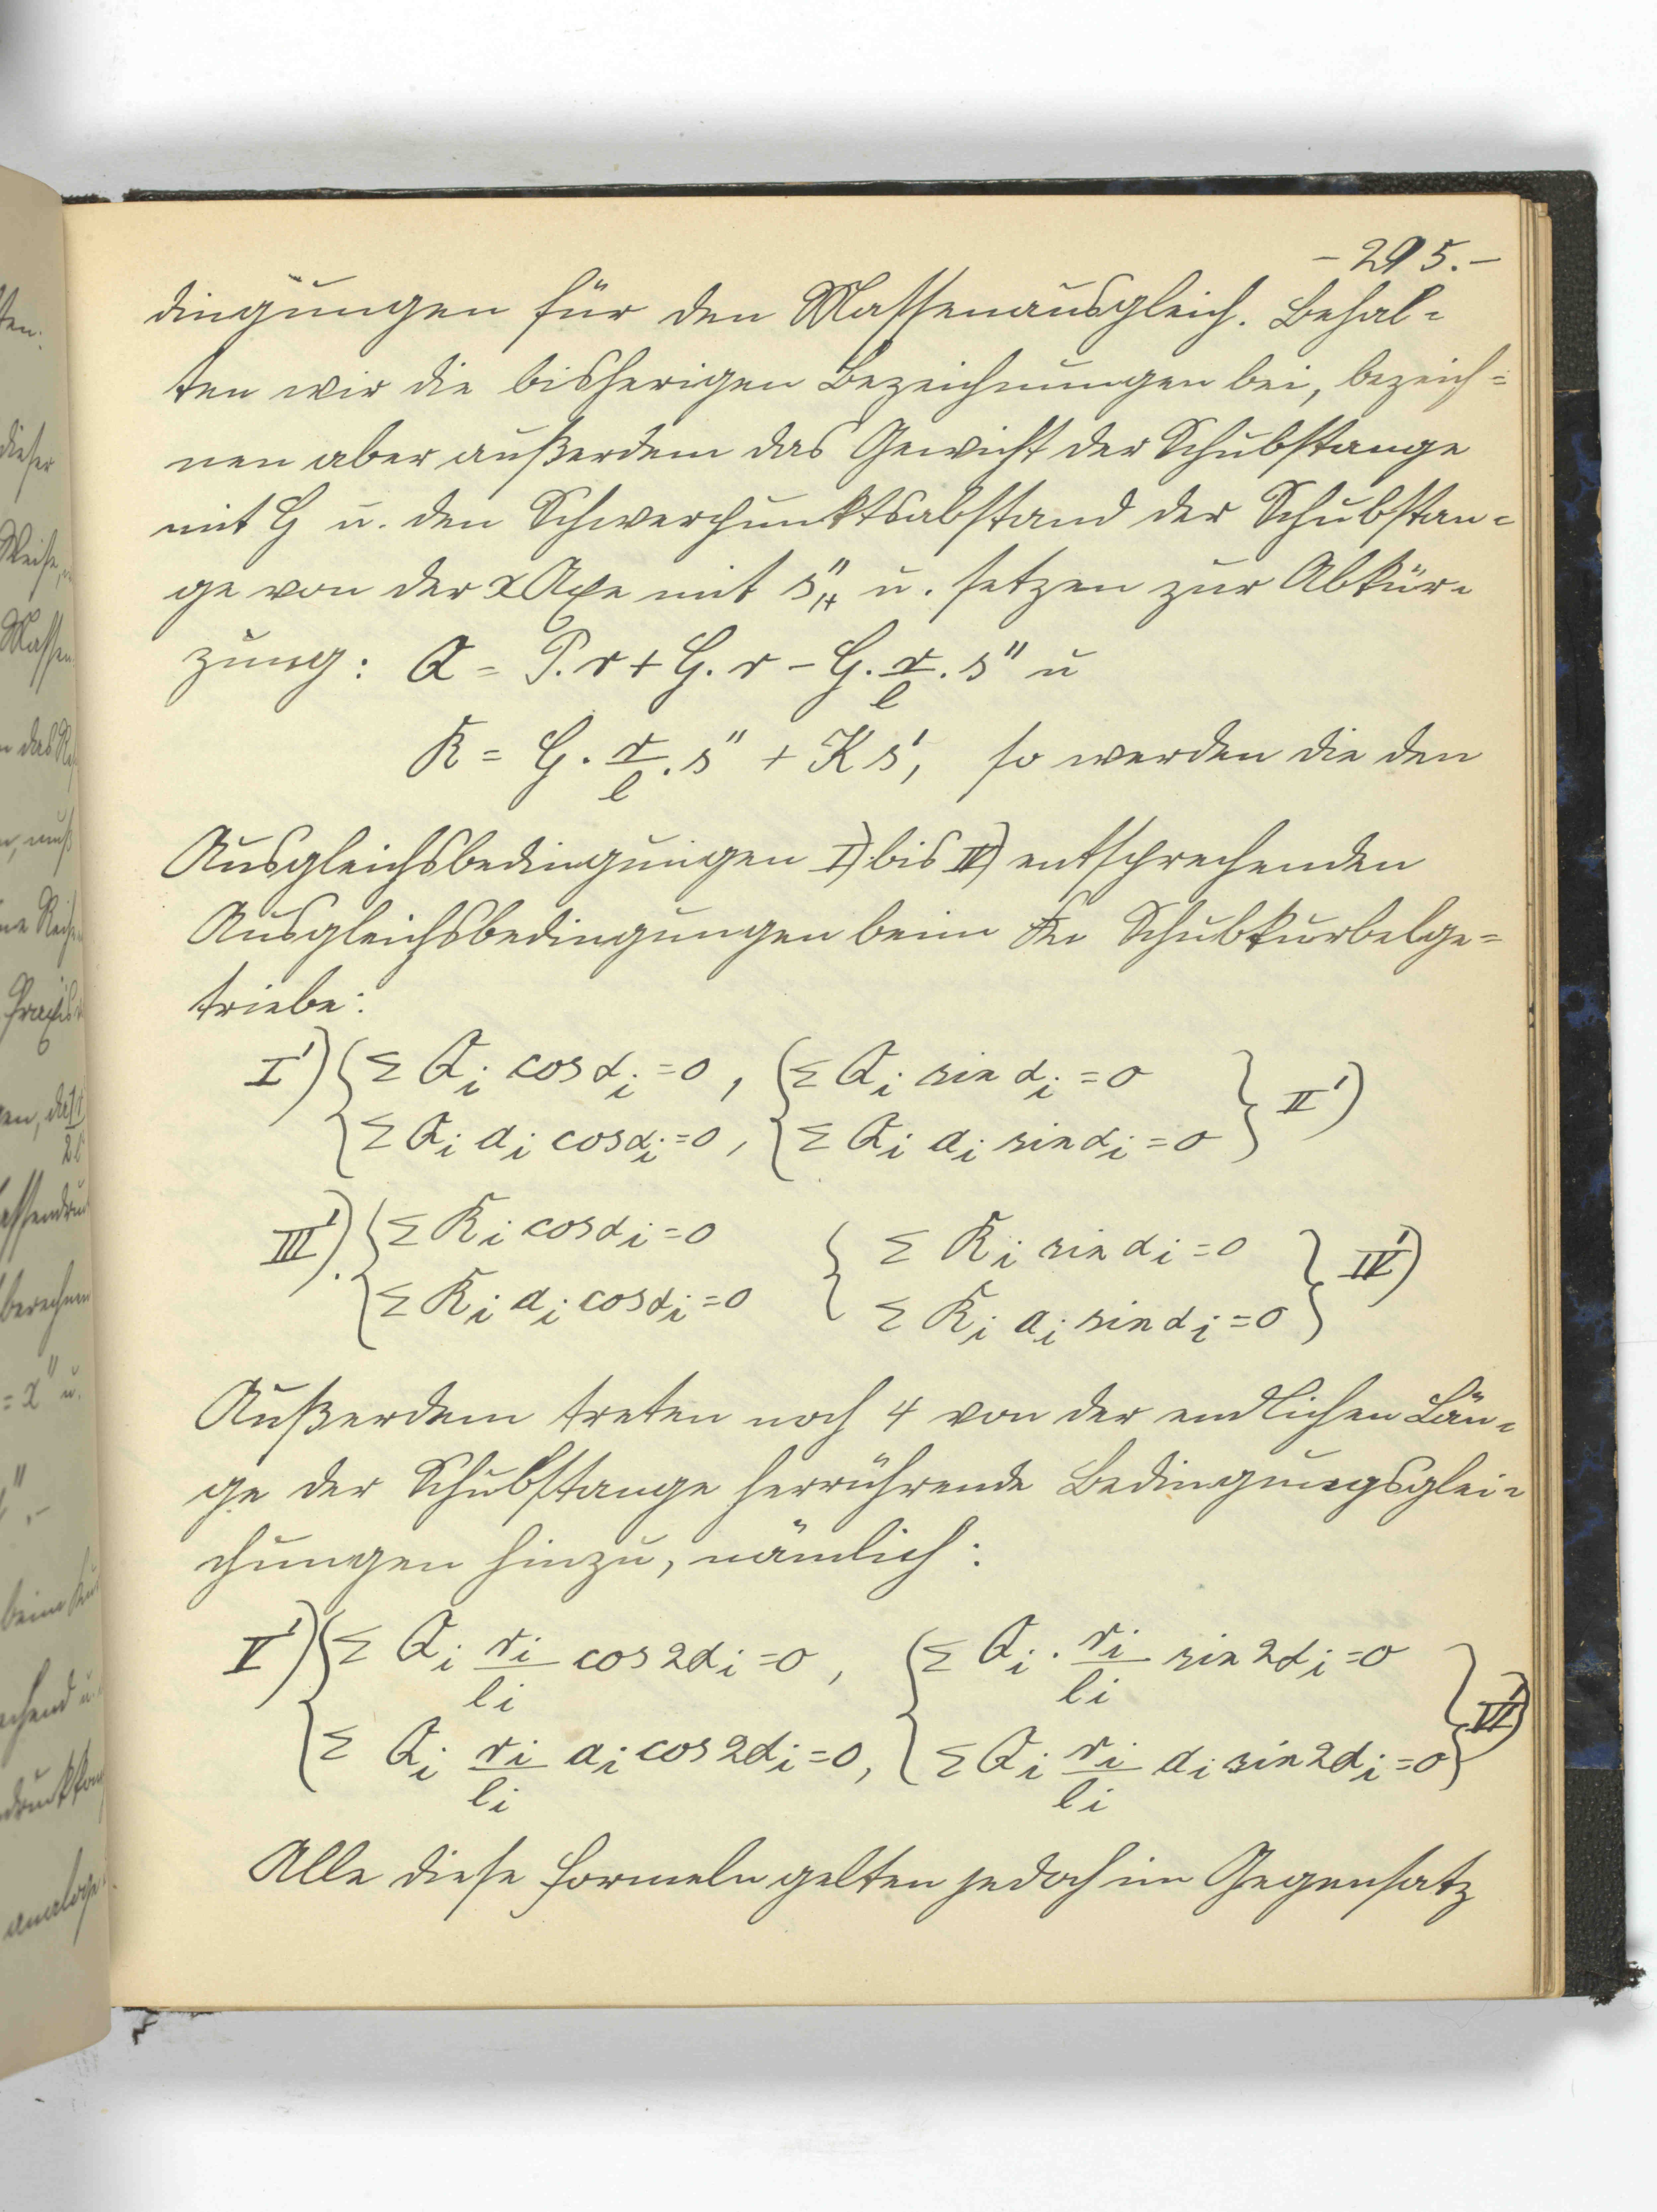 - 295. -
dingungen für den Massenausgleich. Behal=
ten wir die bisherigen Bezeichnungen bei, bezeich=
nen aber außerdem das Gewicht der Schubstange
mit G u. den Schwerpunktsabstand der Schubstan=
ge von der x Axe mit s", u. setzen zur Abkür=
zung: Q = P. r + G. r - G. r/l . s" u
R = G . r/l . s" + K s', so werden die den
Ausgleichsbedingungen I) bis IV) entsprechenden
Ausgleichsbedingungen beim Schubkurbelge=
triebe:
I') { Σ Qi cos αi = 0 , { Σ Qi sin αi = 0 } II')
{ Σ Qi ai cos αi = 0 , { Σ Qi ai sin αi = 0
III'). { Σ Ri cos αi = 0 { Σ Ri sin αi = 0 } IV')
{ Σ Ri ai cos αi = 0 { Σ Ri ai sin αi = 0
Außerdem treten noch 4 von der endlichen Län=
ge der Schubstange herrührende Bedingungsglei=
chungen hinzu, nämlich:
V') { Σ Qi ri/li cos 2αi = 0 , { Σ Qi . ri/li sin 2αi = 0 } VI')
{ Σ Qi ri/li ai cos 2αi = 0 , { Σ Qi ri/li ai sin 2αi = 0
Alle diese Formeln gelten jedoch im Gegensatz